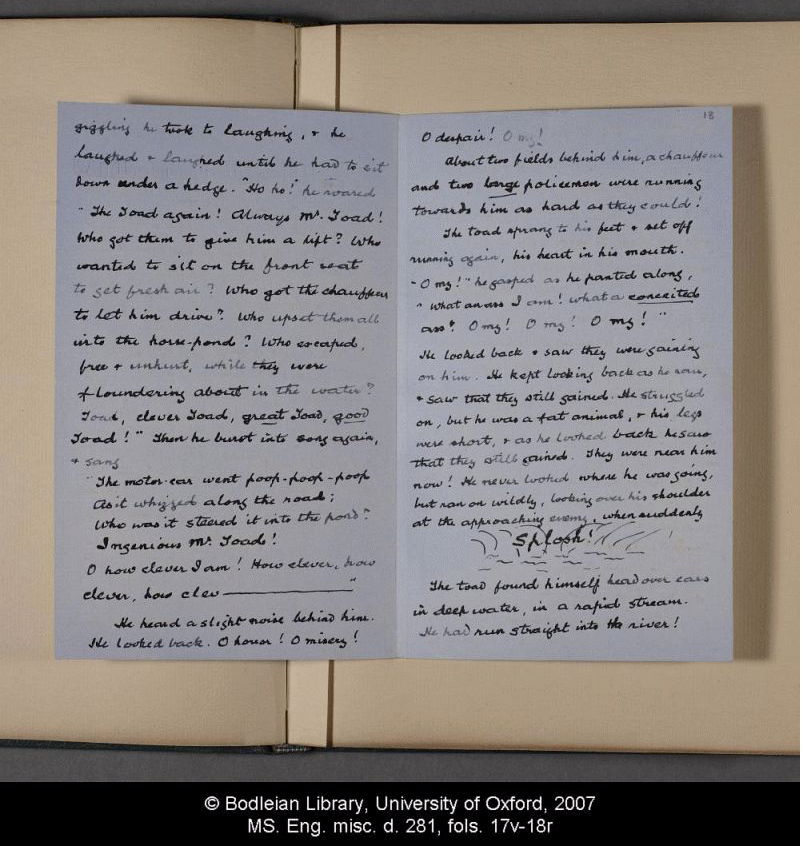 giggling he took to laughing, & he
laughed & laughed until he had to sit
down under a hedge. "Ho ho!" he roared
"The Toad again! Always Mr. Toad!
Who got them to give him a lift? Who
wanted to sit on the front seat
to get fresh air? Who got the chauffeur
to let him drive? Who upset them all
into the horse-pond? Who escaped,
free & unhurt, while they were
floundering about in the water?
Toad, clever Toad, great Toad, good
Toad!" Then he burst into song again,
& sang
"The motor-car went poop-poop-poop
As it whizzed along the road;
Who was it steered it into the pond?
Ingenious Mr. Toad!
O how clever I am! How clever, how
clever, how clev———"
He heard a slight noise behind him.
He looked back. O horror! O misery!
18
O despair! O my!
About two fields behind him, a chauffeur
and two large policemen were running
towards him as hard as they could!
The toad sprang to his feet & set off
running again, his heart in his mouth.
"O my!" he gasped as he panted along,
"what an ass I am! what a conceited
ass! O my! O my! O my!"
He looked back & saw they were gaining
on him. He kept looking back as he ran,
& saw that they still gained. He struggled
on, but he was a fat animal, & his legs
were short, & as he looked back he saw
that they still gained. They were near him
now! He never looked where he was going,
but ran on wildly, looking over his shoulder
at the approaching enemy, when suddenly
Splosh!
The toad found himself head over ears
in deep water, in a rapid stream.
He had run straight into the river!
© Bodleian Library, University of Oxford, 2007
MS. Eng. misc. d. 281, fols. 17v-18r